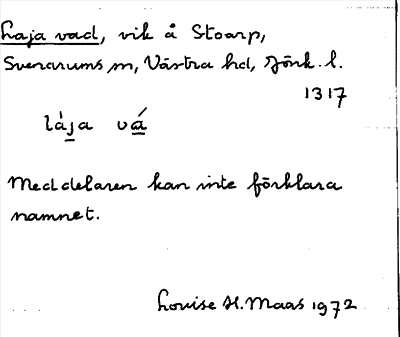 Laja vad, vik å Stoarp,
Svenarums sn, Västra hd, Jönk. l.
1317
làja vá
Meddelaren kan inte förklara
namnet.
Louise H. Maas 1972